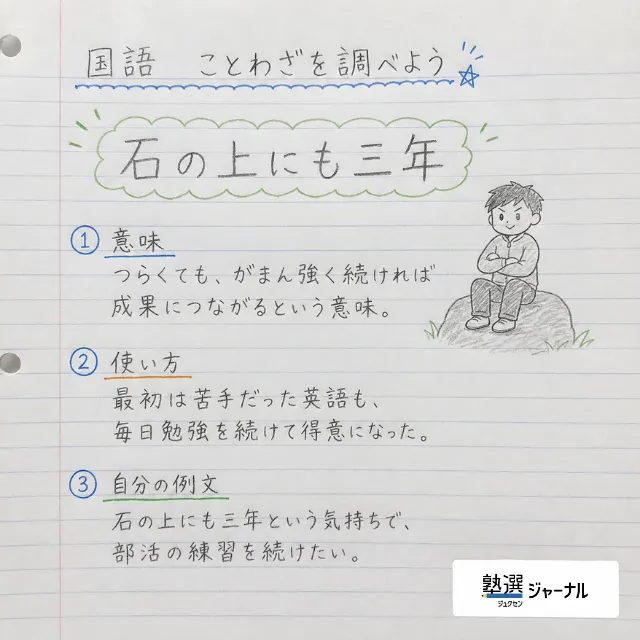 国語 ことわざを調べよう
石の上にも三年
① 意味
つらくても、がまん強く続ければ
成果につながるという意味。
② 使い方
最初は苦手だった英語も、
毎日勉強を続けて得意になった。
③ 自分の例文
石の上にも三年という気持ちで、
部活の練習を続けたい。
塾選ジャーナル
ジュクセン